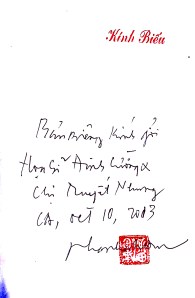 Kính Biếu
Bản riêng kính gửi
Họa Sĩ Đinh Cường &
Chị Tuyết Nhung
CA, oct 10, 2003